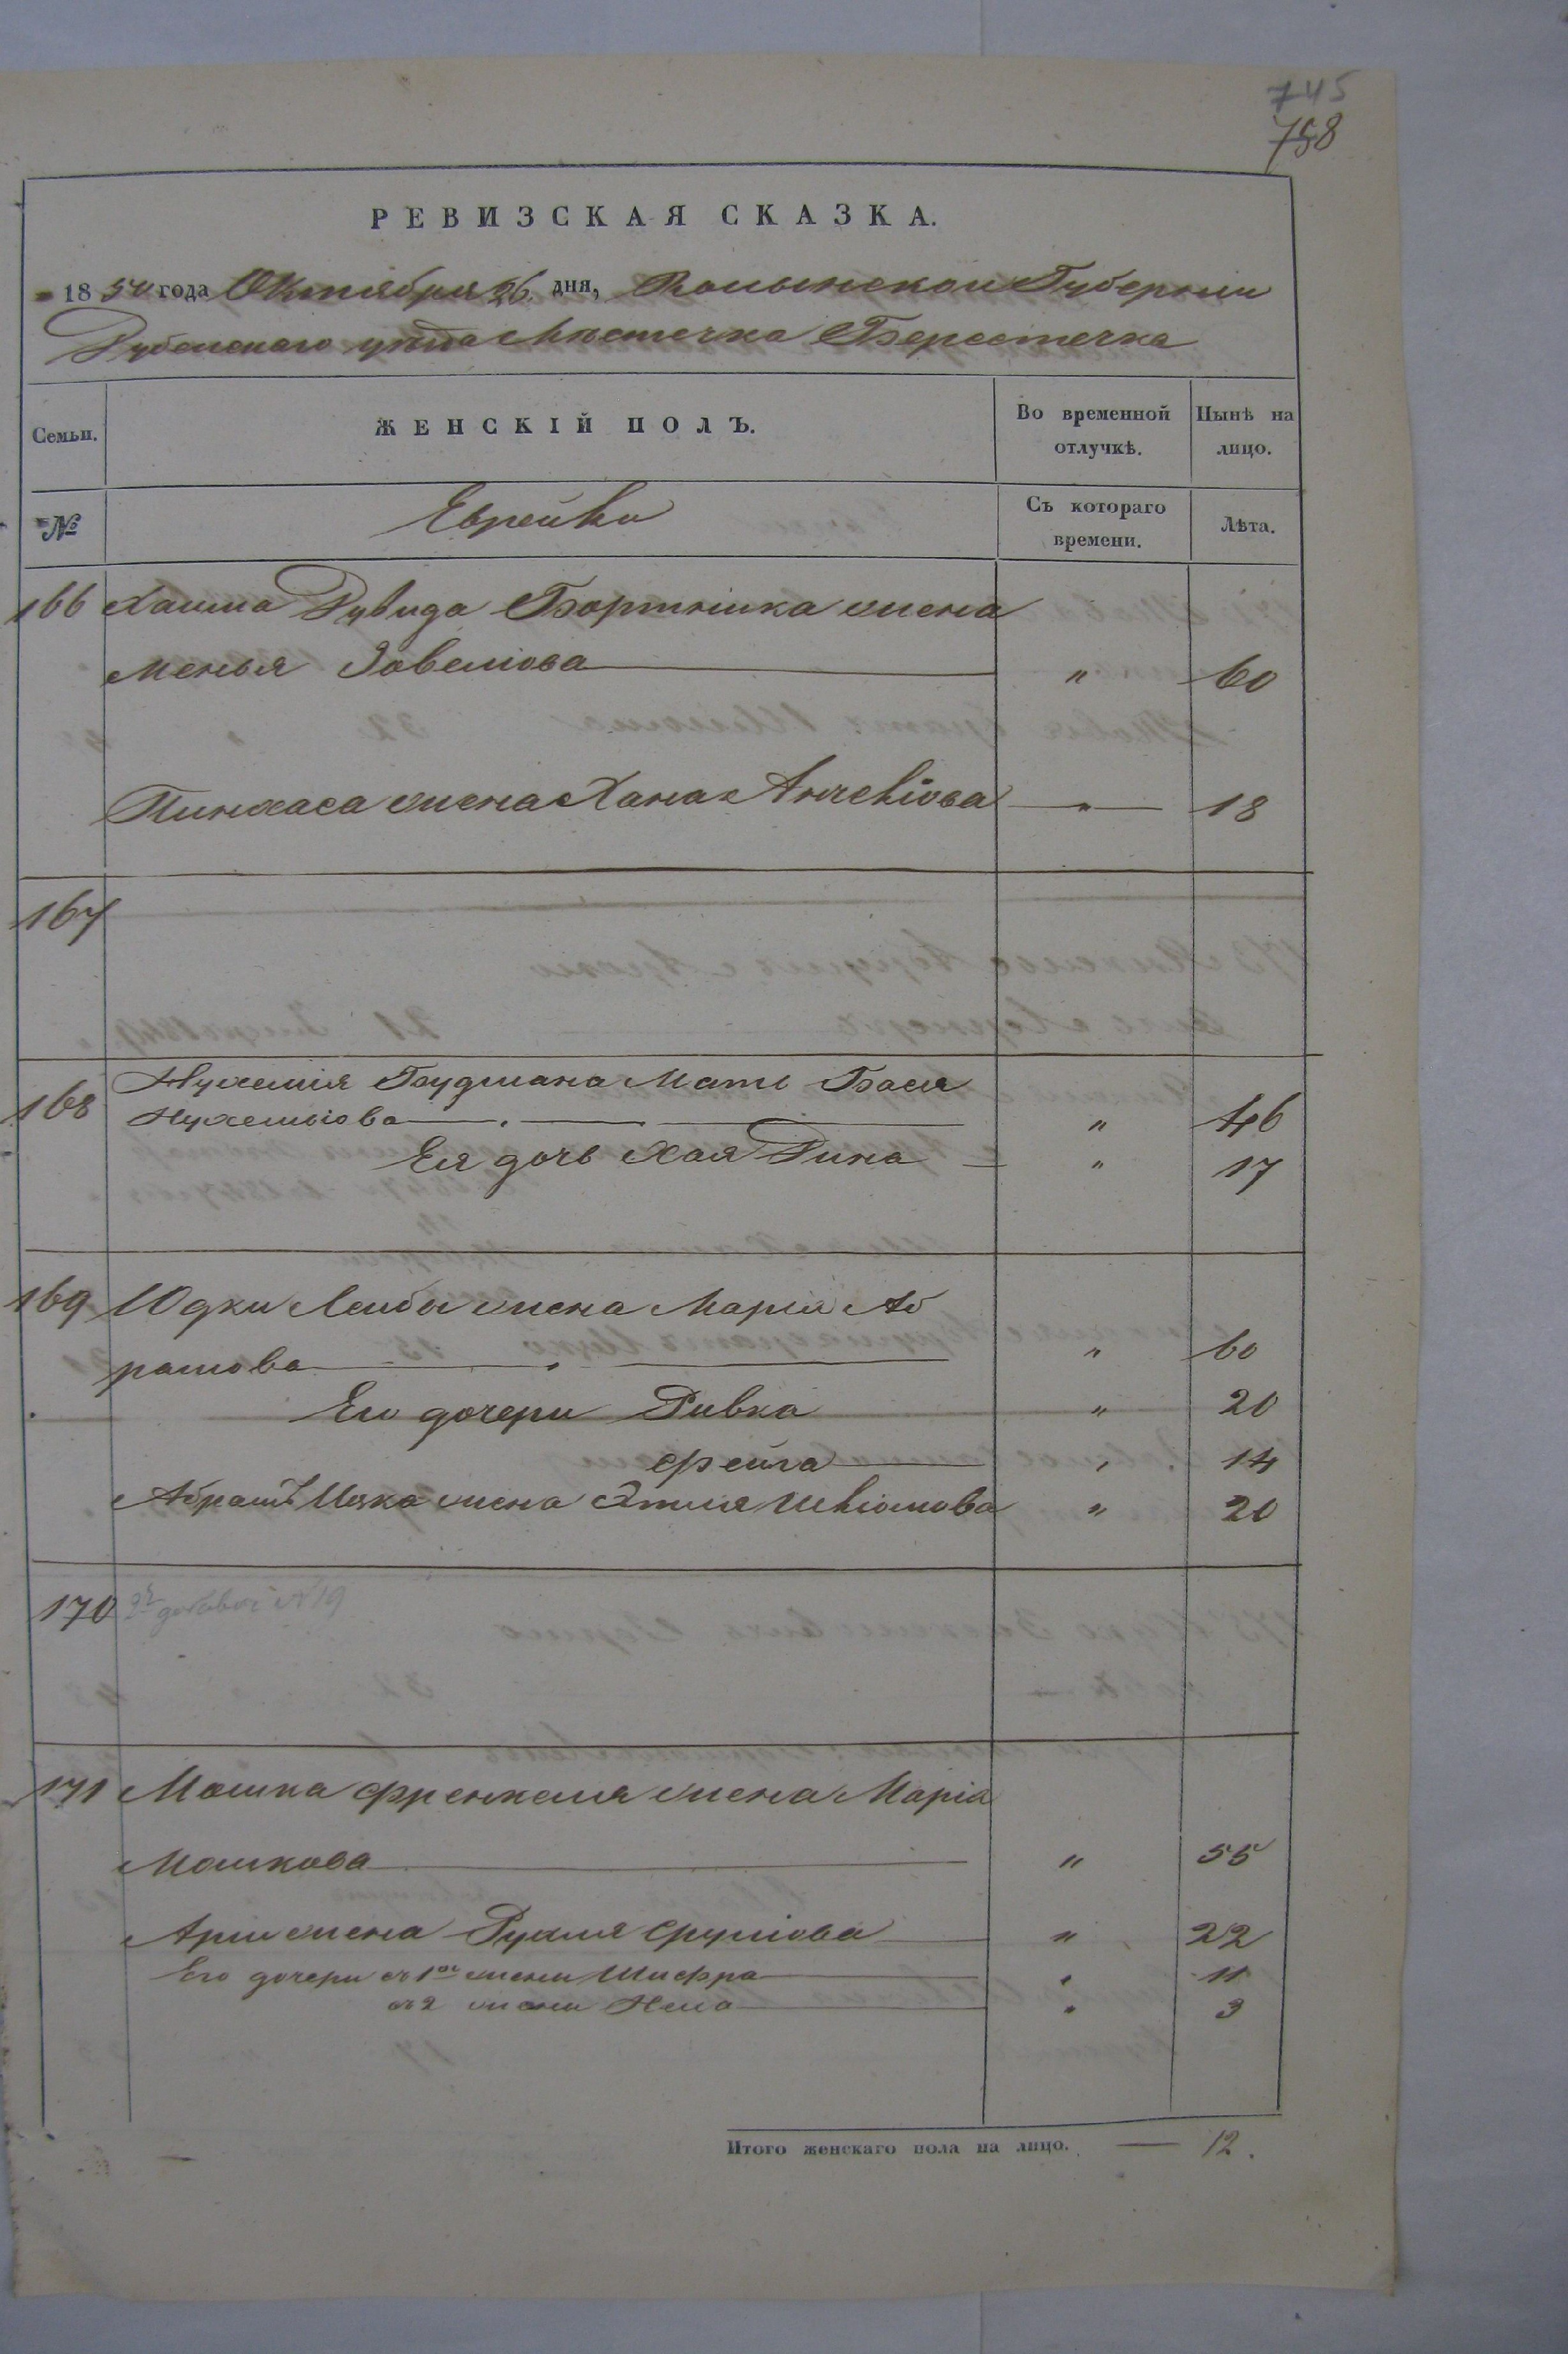 745
758
РЕВИЗСКАЯ СКАЗКА.
1850 года Октября 26 дня, Волынской Губернии
Дубенскаго уезда Местечка Берестечка
Семьи. ЖЕНСКІЙ ПОЛЪ. Во временной отлучкѣ. Нынѣ на лицо.
№ Еврейки Съ котораго времени. Лѣта.
166 Хаима Дувида Бортника жена
Менья Іовеліова " 60
Пинхаса жена Хана Анчелiова " 18
167
168 Нухемія Гудмана Мать Бася
Нухемьiова " 46
Ея дочь Хая Дина " 17
169 Юдки Лейбы жена Марія Аб
рамова " 60
Его дочери Ривка " 20
Фейга " 14
Абрамъ Ицка жена Этля " 20
170 №19
171 Мошка Френкеля жена Марія
Мошкова " 55
Арии жена Рухля Сруліова " 22
Его дочери съ 1ой жены Шифра " 11
съ 2 жены Неха " 3
Итого женскаго пола на лицо. — 12.